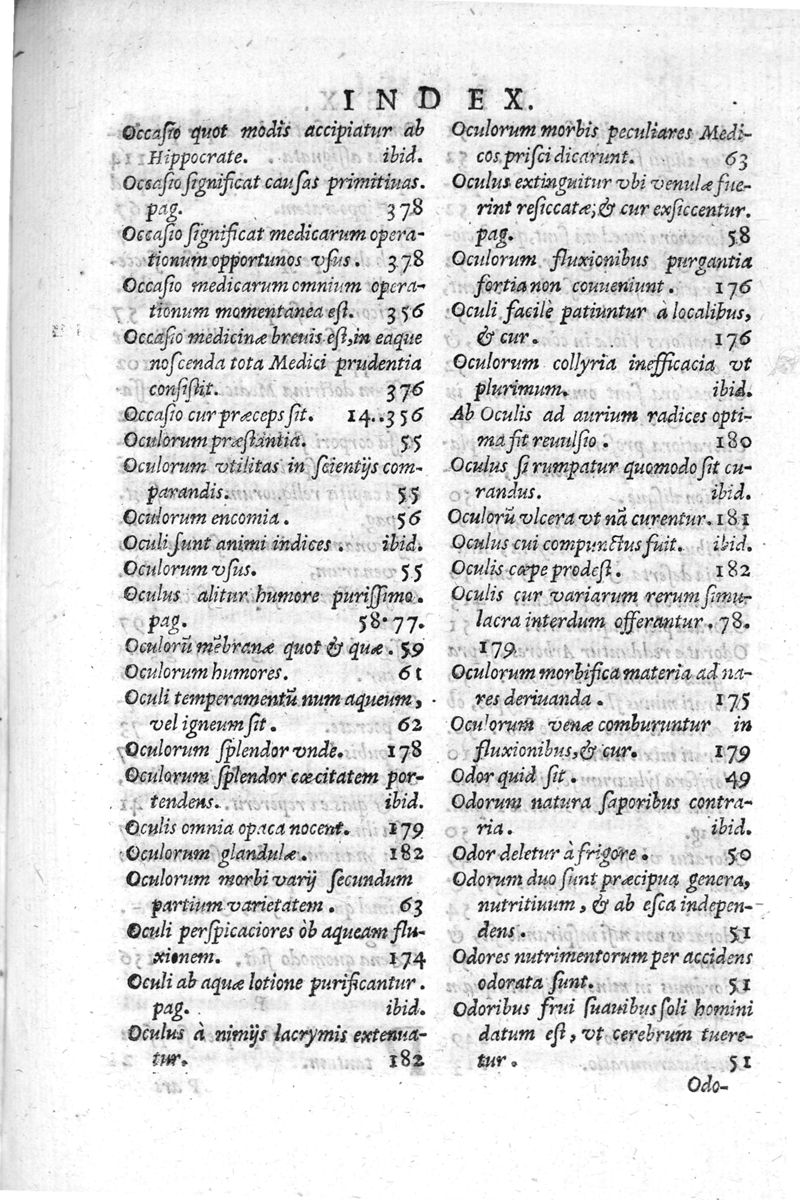 INDEX.
Occasio quot modis accipiatur ab
Hippocrate. ibid.
Occasio significat causas primitiuas.
pag. 378
Occasio significat medicarum opera-
tionum opportunos vsus. 378
Occasio medicarum omnium opera-
tionum momentanea est. 356
Occasio medicinæ breuis est, in eaque
noscenda tota Medici prudentia
consistit. 376
Occasio cur præceps sit. 14..356
Oculorum præstantia. 55
Oculorum vtilitas in scientijs com-
parandis. 55
Oculorum encomia. 56
Oculi sunt animi indices. ibid.
Oculorum vsus. 55
Oculus alitur humore purissimo.
pag. 58.77.
Oculorū mēbranæ quot & quæ. 59
Oculorum humores. 61
Oculi temperamentū num aqueum,
vel igneum sit. 62
Oculorum splendor vnde. 178
Oculorum splendor cæcitatem por-
tendens. ibid.
Oculis omnia opaca nocent. 179
Oculorum glandulæ. 182
Oculorum morbi varij secundum
partium varietatem. 63
Oculi perspicaciores ob aqueam flu-
xionem. 174
Oculi ab aquæ lotione purificantur.
pag. ibid.
Oculus à nimijs lacrymis extenua-
tur. 182
Oculorum morbis peculiares Medi-
cos prisci dicarunt. 63
Oculus extinguitur vbi venulæ fue-
rint resiccatæ; & cur exsiccentur.
pag. 58
Oculorum fluxionibus purgantia
fortia non conueniunt. 176
Oculi facilè patiuntur à localibus,
& cur. 176
Oculorum collyria inefficacia vt
plurimum. ibid.
Ab Oculis ad aurium radices opti-
ma fit reuulsio. 180
Oculus si rumpatur quomodo sit cu-
randus. ibid.
Oculorū vlcera vt nā curentur. 181
Oculus cui compunctus fuit. ibid.
Oculis cæpe prodest. 182
Oculis cur variarum rerum simu-
lacra interdum offerantur. 78.
179
Oculorum morbifica materia ad na-
res deriuanda. 175
Oculorum venæ comburuntur in
fluxionibus, & cur. 179
Odor quid sit. 49
Odorum natura saporibus contra-
ria. ibid.
Odor deletur à frigore. 50
Odorum duo sunt præcipua genera,
nutritiuum, & ab esca indepen-
dens. 51
Odores nutrimentorum per accidens
odorata sunt. 51
Odoribus frui suauibus soli homini
datum est, vt cerebrum tuere-
tur. 51
Odo-